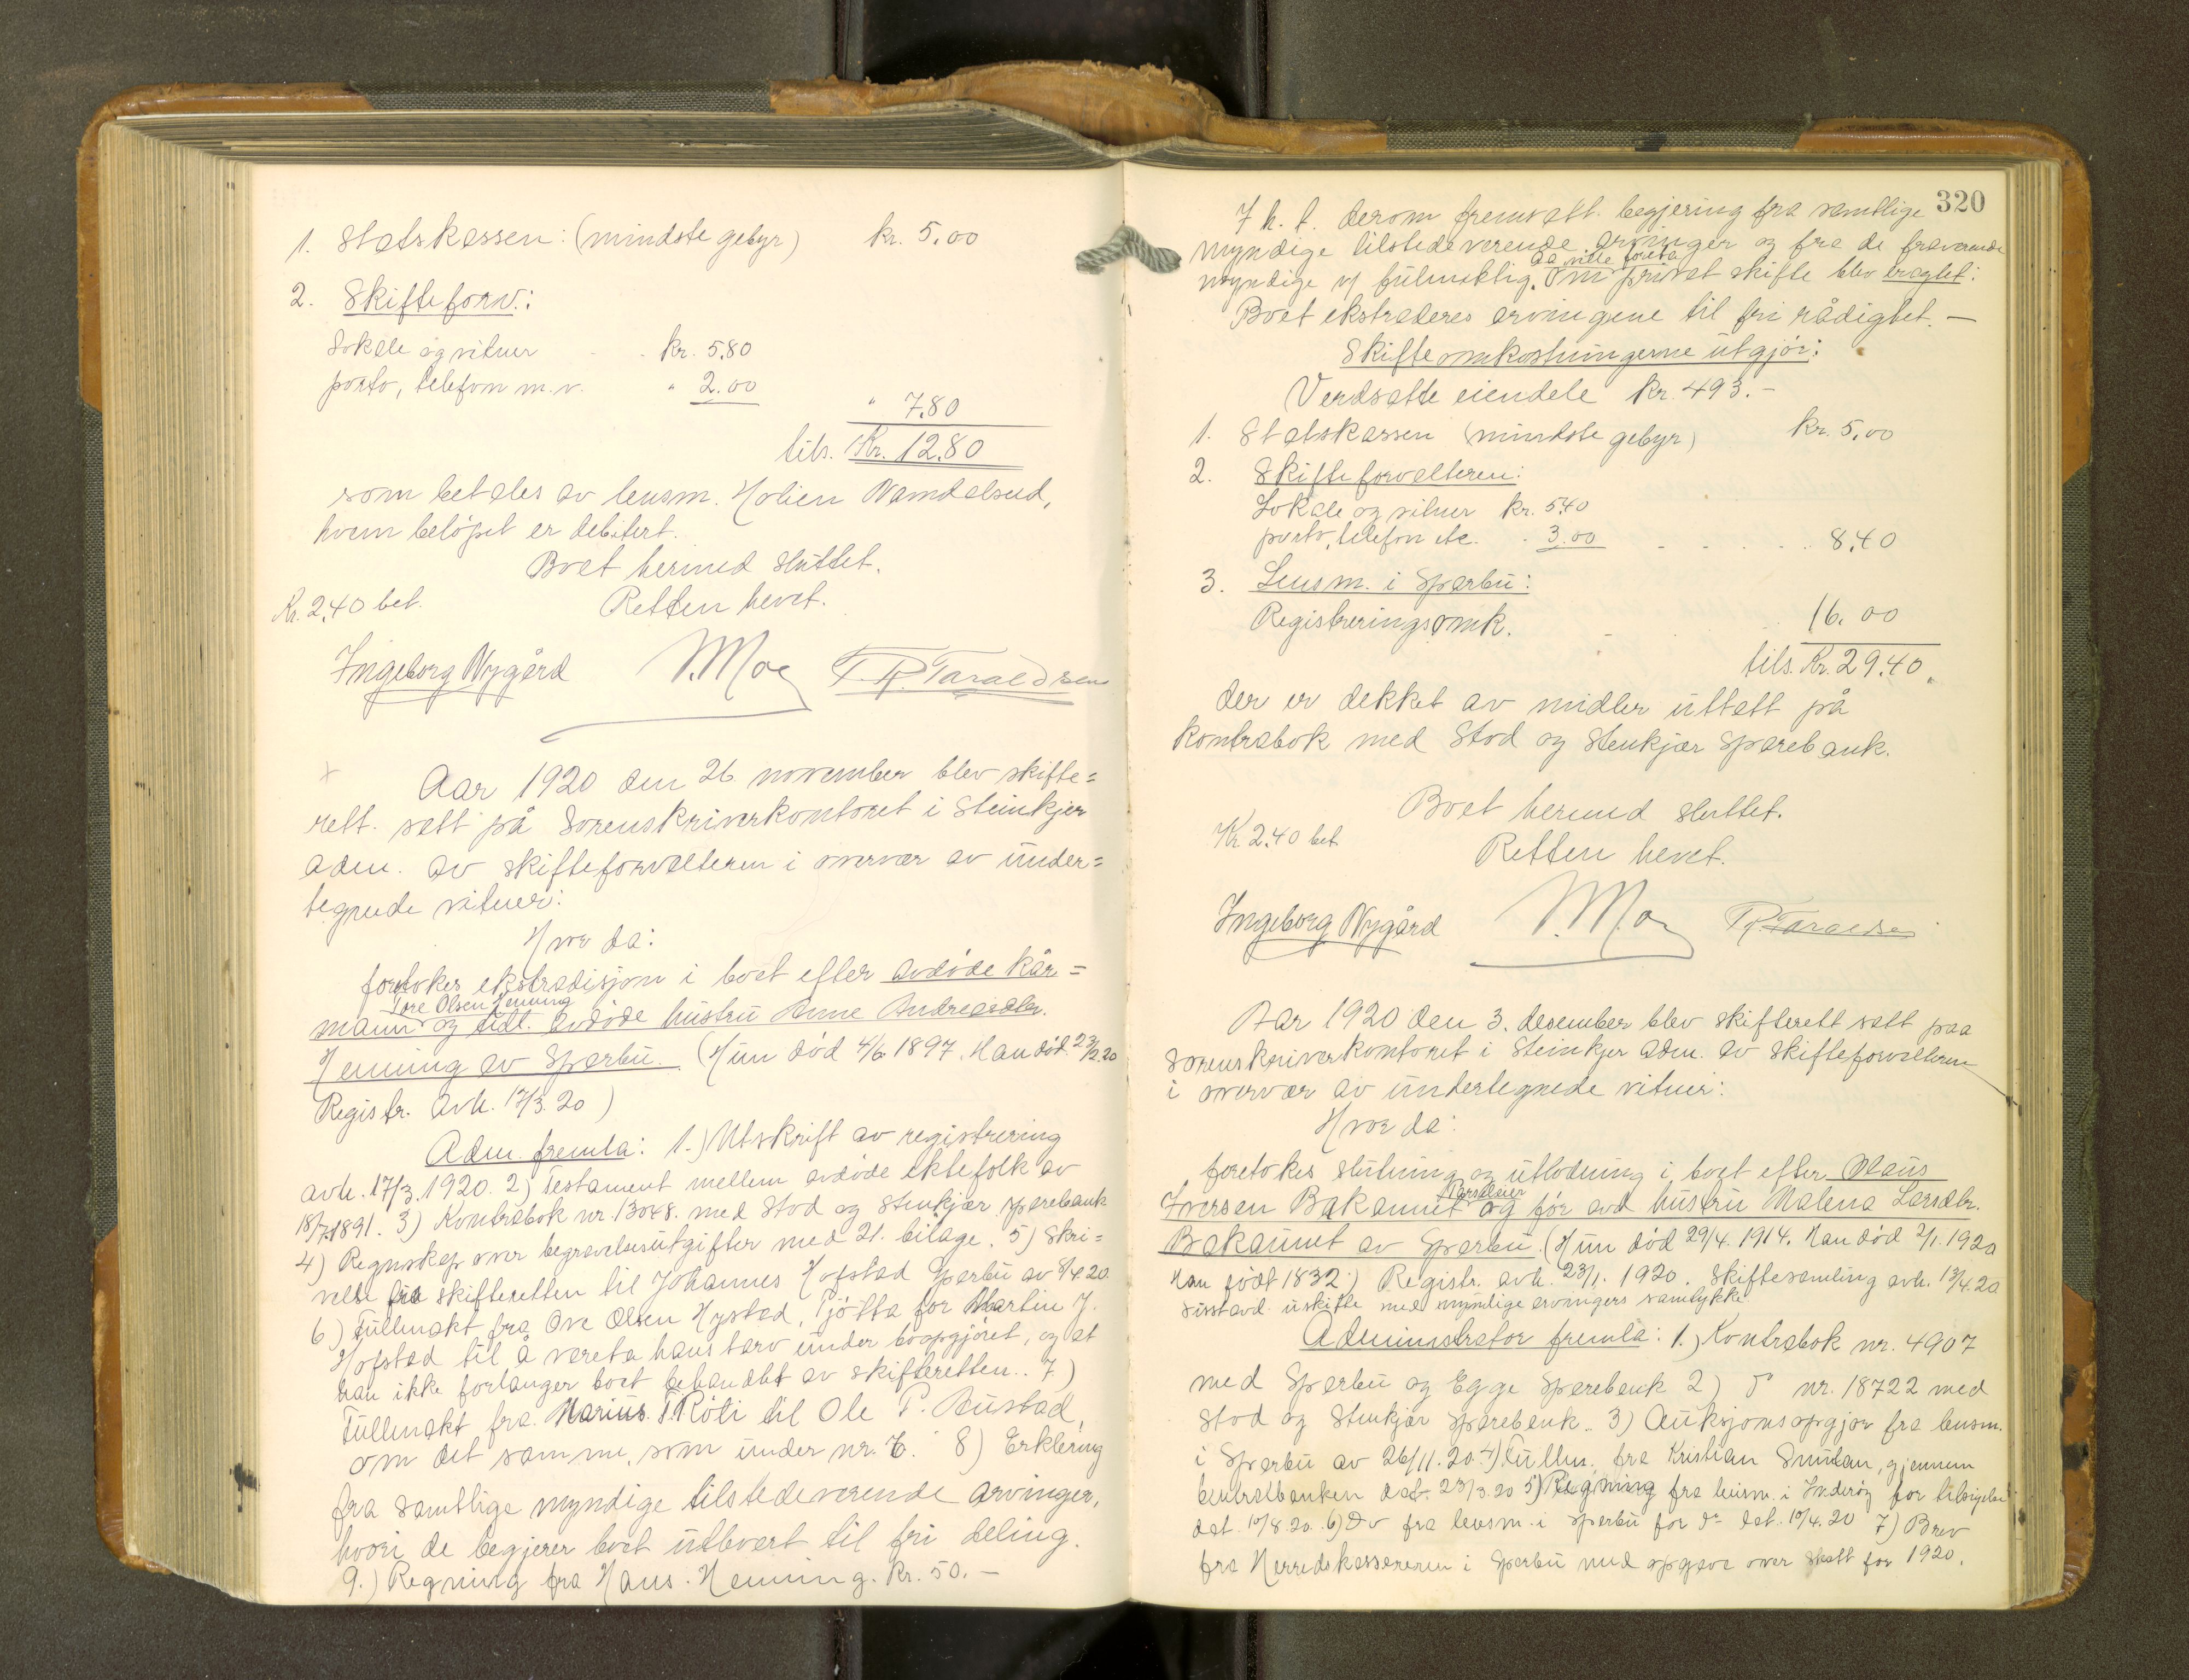 1. Statskassen: (mindste gebyr) kr. 5.00
2. Skifteforv.:
Lokale og vitner kr. 5.80
porto, telefon m.v. " 2.00
" 7.80
tils. Kr. 12.80
som betales av lensm. Holien Namdalseid,
hvem beløpet er debitert.
Boet hermed sluttet.
Kr. 2.40 bet. Retten hevet.
Ingeborg Nygård Moe T. R. Taraldsen
Aar 1920 den 26 november blev skifte=
rett satt på Sorenskriverkontoret i Steinkjer
adm. av skifteforvalteren i overvær av under=
tegnede vitner:
Hvor da:
foretokes ekstradisjon i boet efter avdøde kår=
Tore Olsen Henning
mann og tidl. avdøde hustru Anne Andreasdtr.
Henning av Sparbu. (Hun død 4/6 1897. Han død 23/2.20
Registr. avh. 17/3.20)
Adm. fremla: 1.) Utskrift av registrering
avh. 17/3.1920. 2) Testament mellem avdøde ektefolk av
18/7.1891. 3) Kontrabok nr. 13048. med Stod og Stenkjær sparebank
4) Regnskap over begravelsesutgifter med 21. bilage. 5) Skri=
velse fra skifteretten til Johannes Hofstad Sparbu av 8/4 20.
6) Fullmakt fra Ove Olsen Hystad, Tjøtta for Martin J.
Hofstad til å vareta hans tarv under boopgjøret, og at
han ikke forlanger boet behandlet av skifteretten. 7)
Fullmakt fra Marius T. Røli til Ole P. Austad,
om det samme, som under nr. 6. 8) Erklæring
fra samtlige myndige tilstedeværende arvinger,
hvori de begjærer boet utlevert til fri deling.
9.) Regning fra Hans. Henning. Kr. 50.-
320
I h. t. derom fremsatt begjering fra samtlige
myndige tilstedeværende arvinger og fra de fraværende
da ville foreta
myndige v/ fulmektig. Om privat skifte blev bragtet:
Boet ekstraderes arvingene til fri rådighet. —
Skifteomkostningerne utgjør:
Verdsatte eiendele kr. 493.-
1. Statskassen (mindste gebyr) kr. 5.00
2. Skifteforvalteren:
Lokale og vitner kr. 5.40
porto, telefon etc. " 3.00 8.40
3. Lensm. i Sparbu:
Registreringsomk. 16.00
tils. Kr. 29.40.
der er dekket av midler uttatt på
kontrabok med Stod og Stenkjær Sparebank.
Boet hermed sluttet.
Kr. 2.40 bet. Retten hevet.
Ingeborg Nygård Moe T. R. Taraldsen
Aar 1920 den 3. desember blev skifterett satt paa
Sorenskriverkontoret i Steinkjer adm. av skifteforvalteren
i overvær av undertegnede vitner:
Hvor da:
foretokes slutning og utlodning i boet efter Olaus
Iversen Bakaunet og før avd hustru Malena Larsdtr.
Bakaunet av Sparbu. (Hun død 29/4. 1914. Han død 2/1. 1920
Han født 1832.) Registr. avh. 23/1. 1920. Skiftesamling avh. 13/4.20
sisstavd. uskifte med myndige arvingers samtykke.
Administrator fremla: 1.) Kontrabok nr. 4907
med Sparbu og Egge Sparebank 2) do nr. 18722 med
Stod og Stenkjær Sparebank. 3) Auksjonsopgjør fra lensm.
i Sparbu av 26/11.20. 4) Fullm. fra Kristian gjennem
Centralbanken dat. 23/3.20 5) Regning fra lensm. i Inderøy for tilsigelse
dat. 10/8.20. 6) Do fra lensm. i Sparbu for do dat. 10/4.20 7) Brev
fra Herredskassereren i Sparbu med opgave over skatt for 1920.